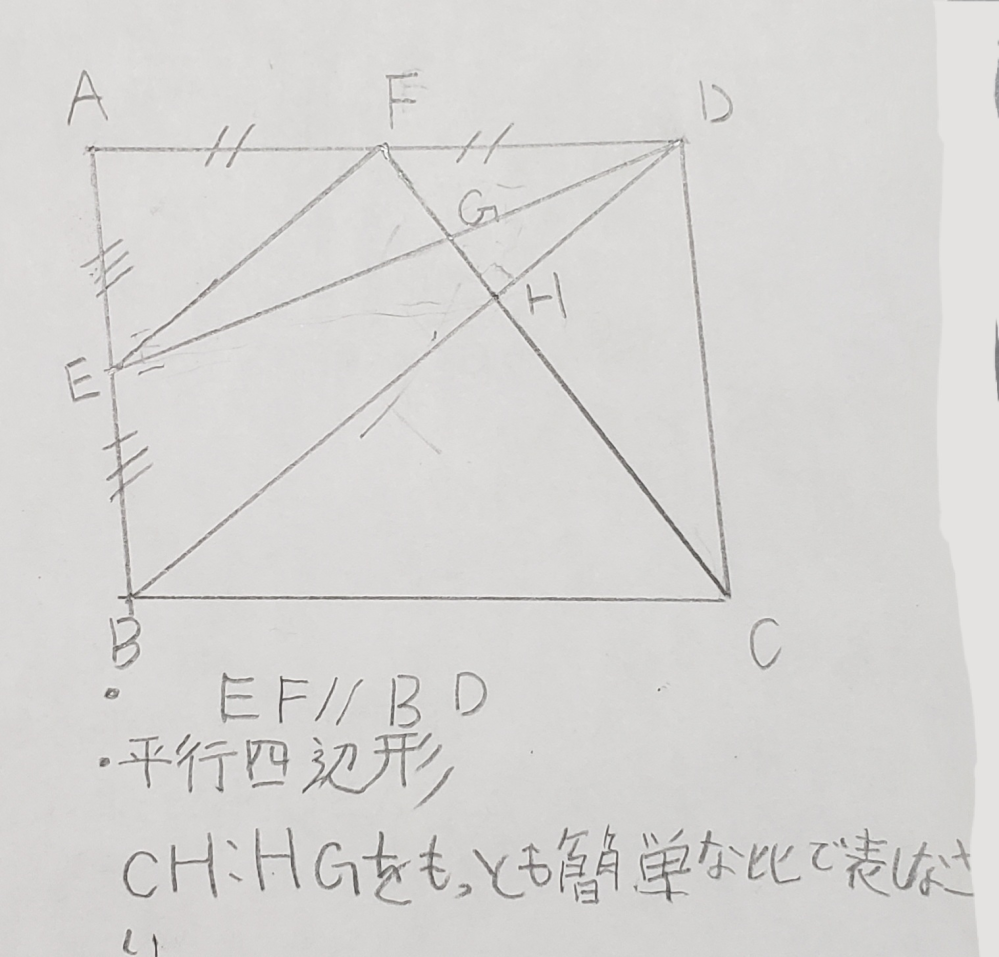 A
F
D
G
H
E
B
C
・ EF // BD
・平行四辺形
CH:HGをもっとも簡単な比で表しなさ
い